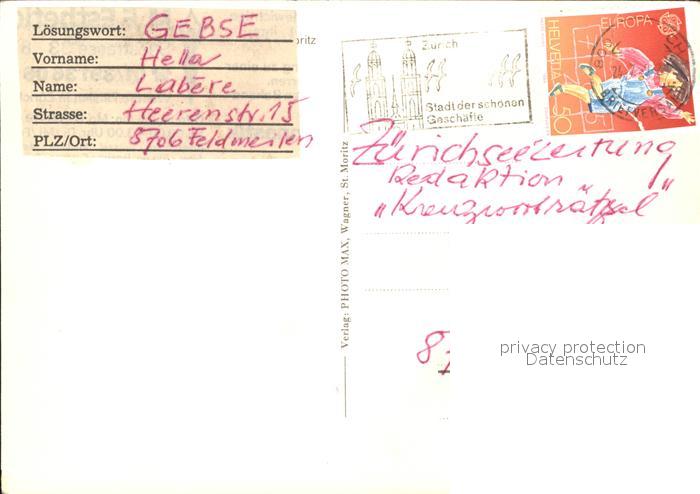 Lösungswort: GEBSE
Vorname: Hella
Name: Labère
Strasse: Heerenstr. 15
PLZ/Ort: 8706 Feldmeilen
oritz
Zürich
Stadt der schönen
Geschäfte
HELVETIA
EUROPA
50
BRIEFVERSAND
Zürichseezeitung
Redaktion
"Kreuzworträtsel"
Verlag: PHOTO MAX, Wagner, St. Moritz
8
privacy protection
Datenschutz